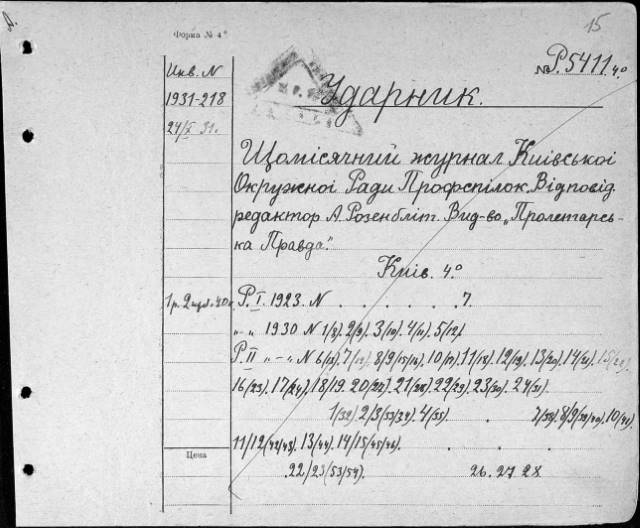 15
Форма № 4°
Инв. N
№ Р.5411. 4°
1931-218
Ударник.
24/X 31.
Щомісячний журнал Київської
Окружної Ради Профспілок. Відповід.
редактор А. Розенбліт. Вид-во „Пролетарсь-
ка Правда".
Київ. 4°
Р. I. 1923. N . . . . . . 7.
„-„ 1930 N 1(8). 2(9). 3(10). 4(11). 5(12).
Р. II „-„ N 6(13). 7(14). 8/9(15/16). 10(17). 11(18). 12(19). 13(20). 14(21). 15(22).
16(23). 17(24). 18/19. 20(27). 21(28). 22(29). 23(30). 24(31).
1(32). 2/3(33/34). 4(35). 7(38). 8/9(39/40). 10(41).
11/12(42/43). 13(44). 14/15(45/46).
Цена
22/23(53/54). 26. 27 28